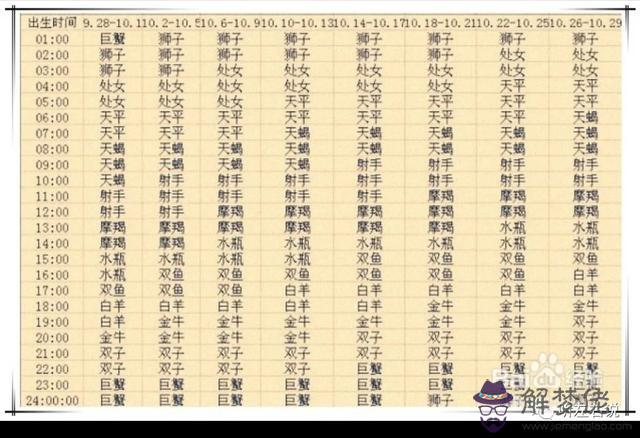 出生时间 9.28-10.1 10.2-10.5 10.6-10.9 10.10-10.13 10.14-10.17 10.18-10.21 10.22-10.25 10.26-10.29
01:00 巨蟹 狮子 狮子 狮子 狮子 狮子 狮子 狮子
02:00 狮子 狮子 狮子 狮子 狮子 狮子 处女 处女
03:00 狮子 狮子 处女 处女 处女 处女 处女 处女
04:00 处女 处女 处女 处女 处女 处女 天平 天平
05:00 处女 处女 处女 天平 天平 天平 天平 天平
06:00 天平 天平 天平 天平 天平 天平 天平 天蝎
07:00 天平 天平 天平 天蝎 天蝎 天蝎 天蝎 天蝎
08:00 天蝎 天蝎 天蝎 天蝎 天蝎 天蝎 天蝎 天蝎
09:00 天蝎 天蝎 天蝎 天蝎 射手 射手 射手 射手
10:00 天蝎 射手 射手 射手 射手 射手 射手 射手
11:00 射手 射手 射手 射手 射手 摩羯 摩羯 摩羯
12:00 射手 射手 摩羯 摩羯 摩羯 摩羯 摩羯 摩羯
13:00 摩羯 摩羯 摩羯 摩羯 摩羯 摩羯 水瓶 水瓶
14:00 摩羯 摩羯 水瓶 水瓶 水瓶 水瓶 水瓶 水瓶
15:00 水瓶 水瓶 水瓶 水瓶 双鱼 双鱼 双鱼 双鱼
16:00 水瓶 双鱼 双鱼 双鱼 双鱼 双鱼 双鱼 白羊
17:00 双鱼 双鱼 双鱼 白羊 白羊 白羊 白羊 白羊
18:00 白羊 白羊 白羊 白羊 白羊 金牛 金牛 金牛
19:00 白羊 金牛 金牛 金牛 金牛 金牛 金牛 双子
20:00 金牛 金牛 金牛 金牛 双子 双子 双子 双子
21:00 双子 双子 双子 双子 双子 双子 双子
22:00 双子 双子 双子 双子 巨蟹 巨蟹 巨蟹 巨蟹
23:00 巨蟹 巨蟹 巨蟹 巨蟹 巨蟹 巨蟹
24:00:00 巨蟹 巨蟹 巨蟹 巨蟹 巨蟹 狮子
解梦佬
www.jiemenglao.com